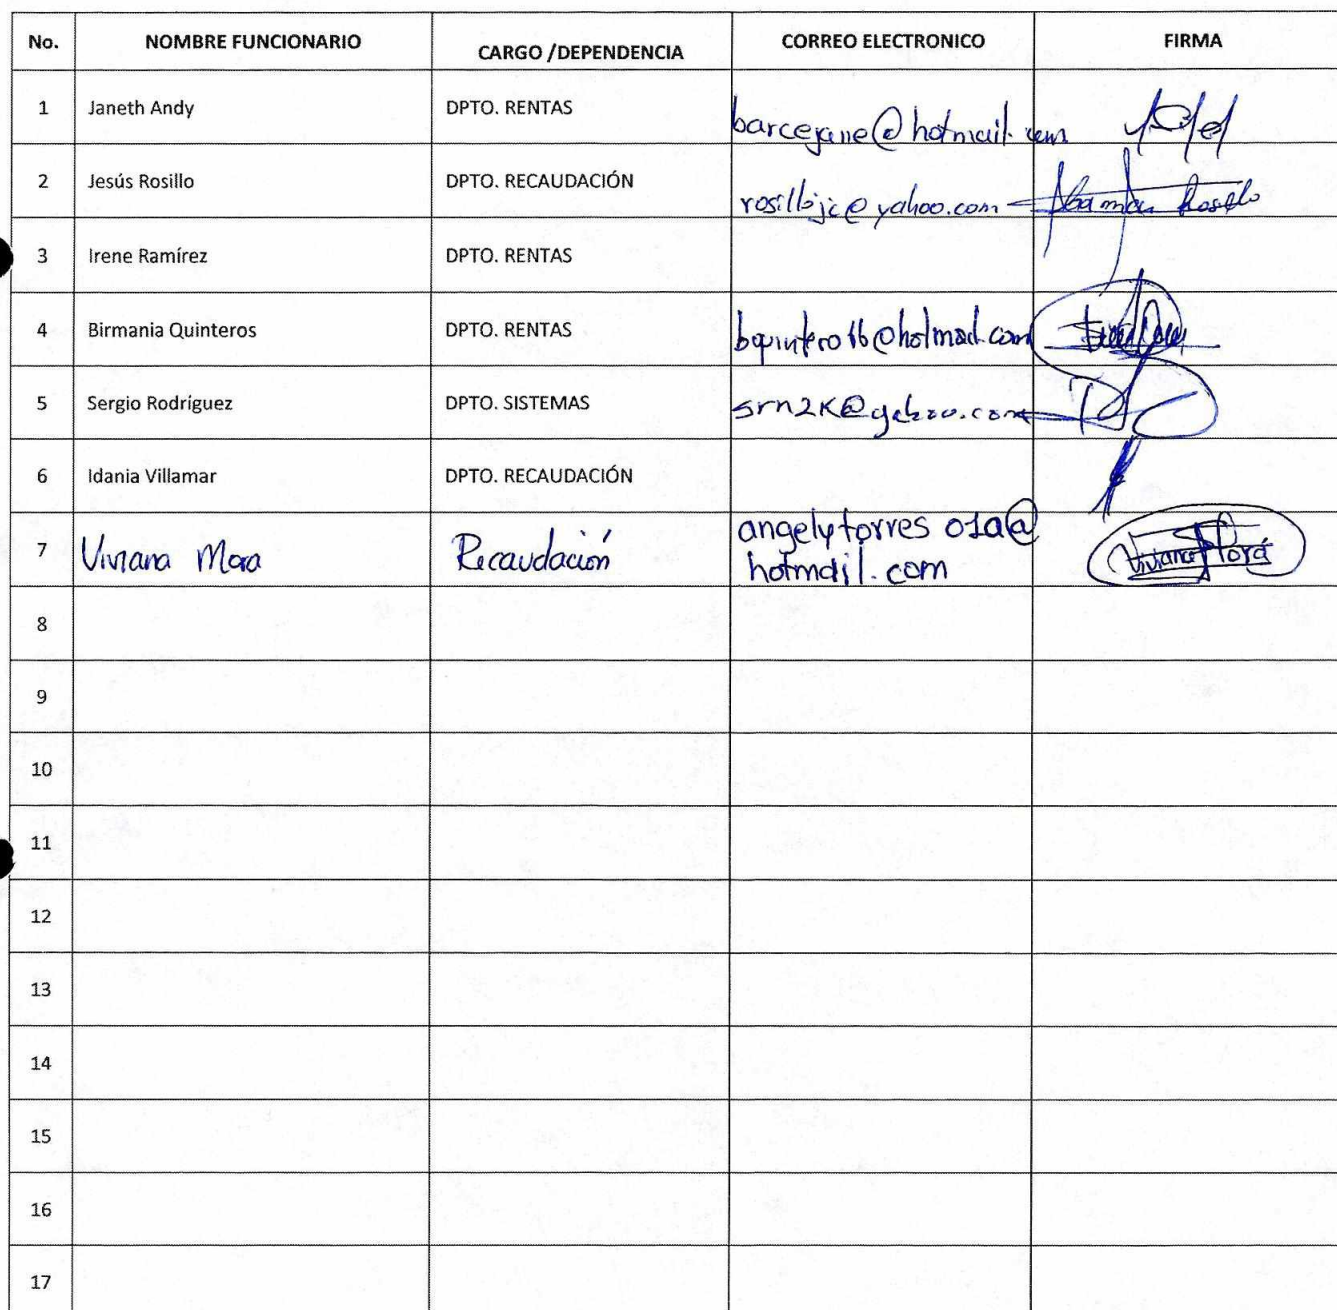 No. NOMBRE FUNCIONARIO CARGO /DEPENDENCIA CORREO ELECTRONICO FIRMA
1 Janeth Andy DPTO. RENTAS barcejane@hotmail.com
2 Jesús Rosillo DPTO. RECAUDACIÓN rosillojc@yahoo.com
3 Irene Ramírez DPTO. RENTAS
4 Birmania Quinteros DPTO. RENTAS bquintero16@hotmail.com
5 Sergio Rodríguez DPTO. SISTEMAS srn2K@yahoo.com
6 Idania Villamar DPTO. RECAUDACIÓN
7 Viviana Mora Recaudación angelytorres 01a@
hotmail.com Viviana Mora
8
9
10
11
12
13
14
15
16
17